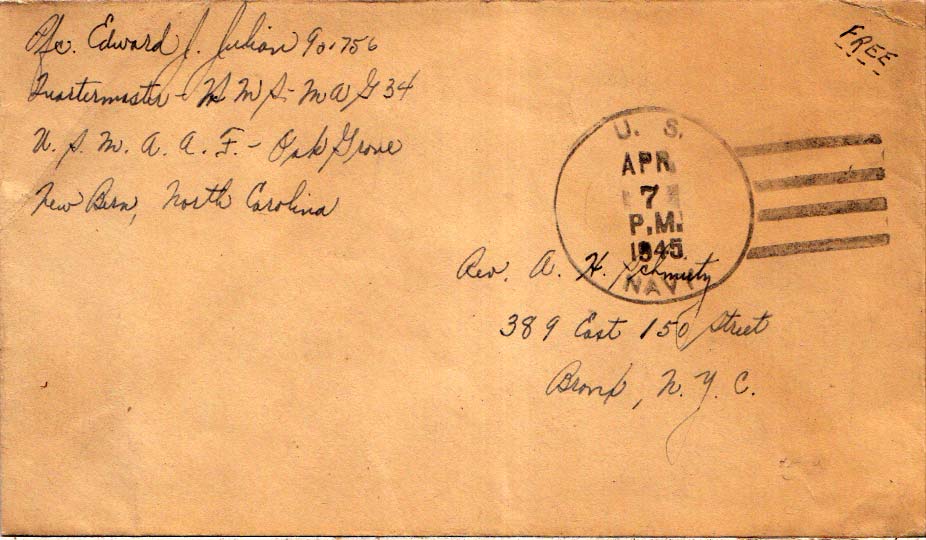 Pfc. Edward J. Julian 901756
Quartermaster - H M S - M A G 34
U. S. M. A. A. F. - Oak Grove
New Bern, North Carolina
FREE
U. S.
APR
7
P.M.
1945
NAVY
Rev. A. H.
389 East 150 Street
Bronx, N. Y. C.